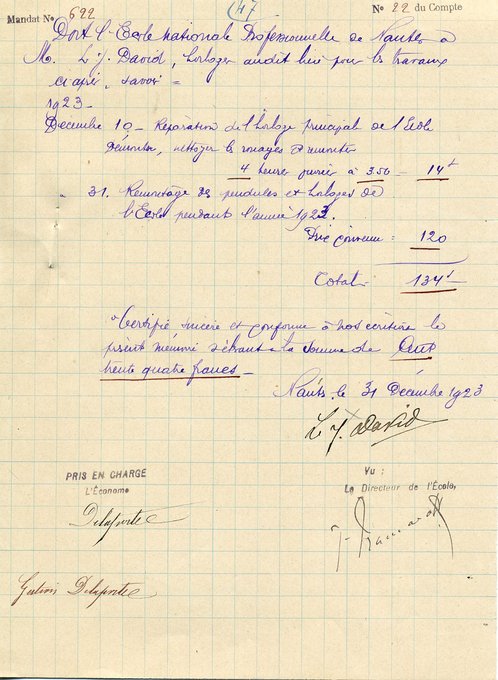 Mandat No 622
47
No 22 du Compte
Doit l'Ecole Nationale Professionnelle de Nantes à
M. L. J. David, horloger audit lieu pour les travaux
ci après, savoir =
1923 -
Décembre 10 - Réparation de l'horloge principale de l'Ecole
Démonter, nettoyer les rouages et remonter
4 heures ouvrier à 3.50 - 14f
" 31. Remontage des pendules et horloges de
l'Ecole pendant l'année 1923.
Prix convenu = 120
Total 134f -
Certifié sincère et conforme à nos écritures le
présent mémoire s'élevant à la somme de Cent
trente quatre francs -
Nantes, le 31 Décembre 1923
L. J. David
PRIS EN CHARGE
L'Économe
Delaporte
Vu :
Le Directeur de l'École,
Delaporte